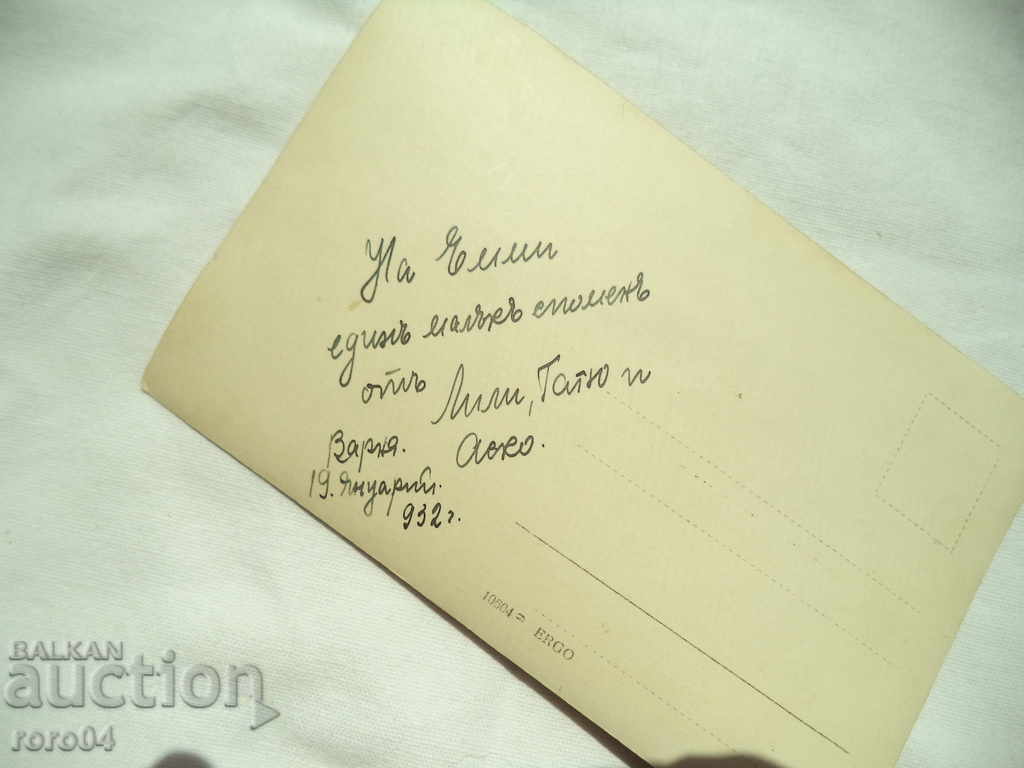 На Еми
единъ малъкъ споменъ
отъ Лили, Гатю и
Варна. Аско.
19. Януарий.
932 г.
10504 = ERGO
BALKAN
auction
roro04